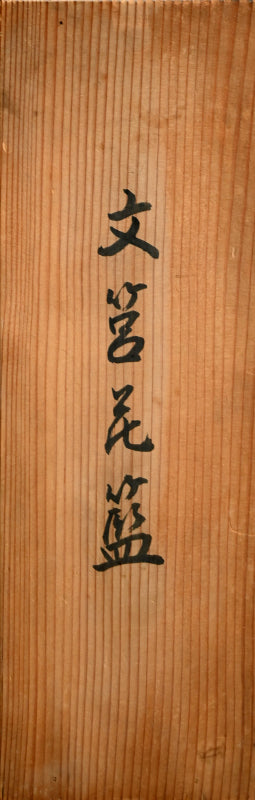 文筥花籃